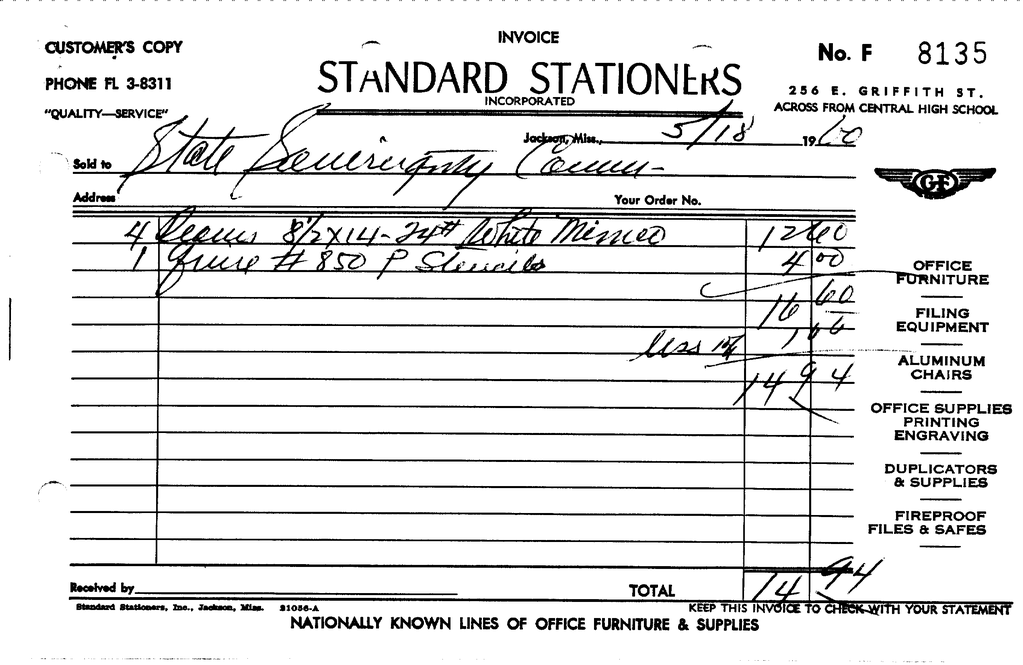 CUSTOMER'S COPY
INVOICE
No. F 8135
PHONE FL 3-8311
STANDARD STATIONERS
INCORPORATED
256 E. GRIFFITH ST.
"QUALITY—SERVICE"
ACROSS FROM CENTRAL HIGH SCHOOL
Jackson, Miss., 5/18 1960
Sold to State Sovereignty Comm-
GF
Address
Your Order No.
4 Reams 8 1/2 X 14 - 24# White Mimeo 12 60
1 Quire # 850 P Stencils 4 00
16 60
less 10% 1 66
14 94
OFFICE FURNITURE
FILING EQUIPMENT
ALUMINUM CHAIRS
OFFICE SUPPLIES
PRINTING
ENGRAVING
DUPLICATORS & SUPPLIES
FIREPROOF FILES & SAFES
Received by
TOTAL 14 94
Standard Stationers, Inc., Jackson, Miss. 21056-A
KEEP THIS INVOICE TO CHECK WITH YOUR STATEMENT
NATIONALLY KNOWN LINES OF OFFICE FURNITURE & SUPPLIES